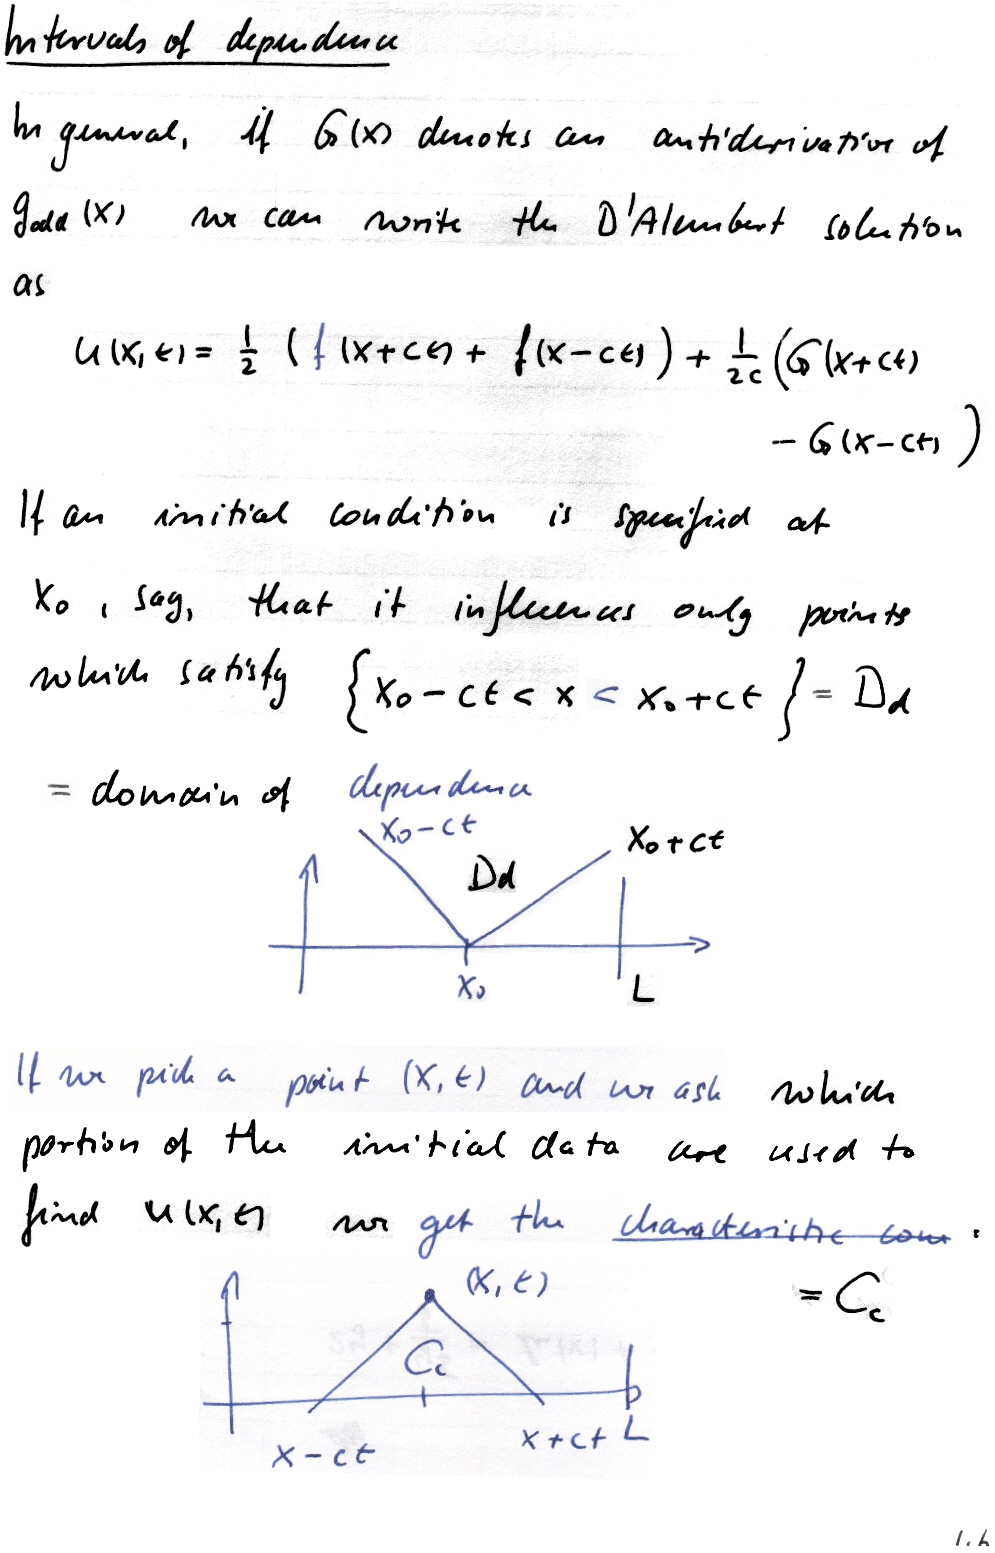 Intervals of dependence
In general, if G(x) denotes an antiderivative of
g_odd (x) we can write the D'Alembert solution
as
u(x,t) = 1/2 ( f(x+ct) + f(x-ct) ) + 1/2c ( G(x+ct)
- G(x-ct) )
If an initial condition is specified at
x₀, say, that it influences only points
which satisfy { x₀-ct < x < x₀+ct } = Dd
= domain of dependence
x₀-ct
x₀+ct
Dd
x₀
L
If we pick a point (x,t) and we ask which
portion of the initial data are used to
find u(x,t) we get the characteristic cone :
(x,t)
= Cc
Cc
x-ct
x+ct
L